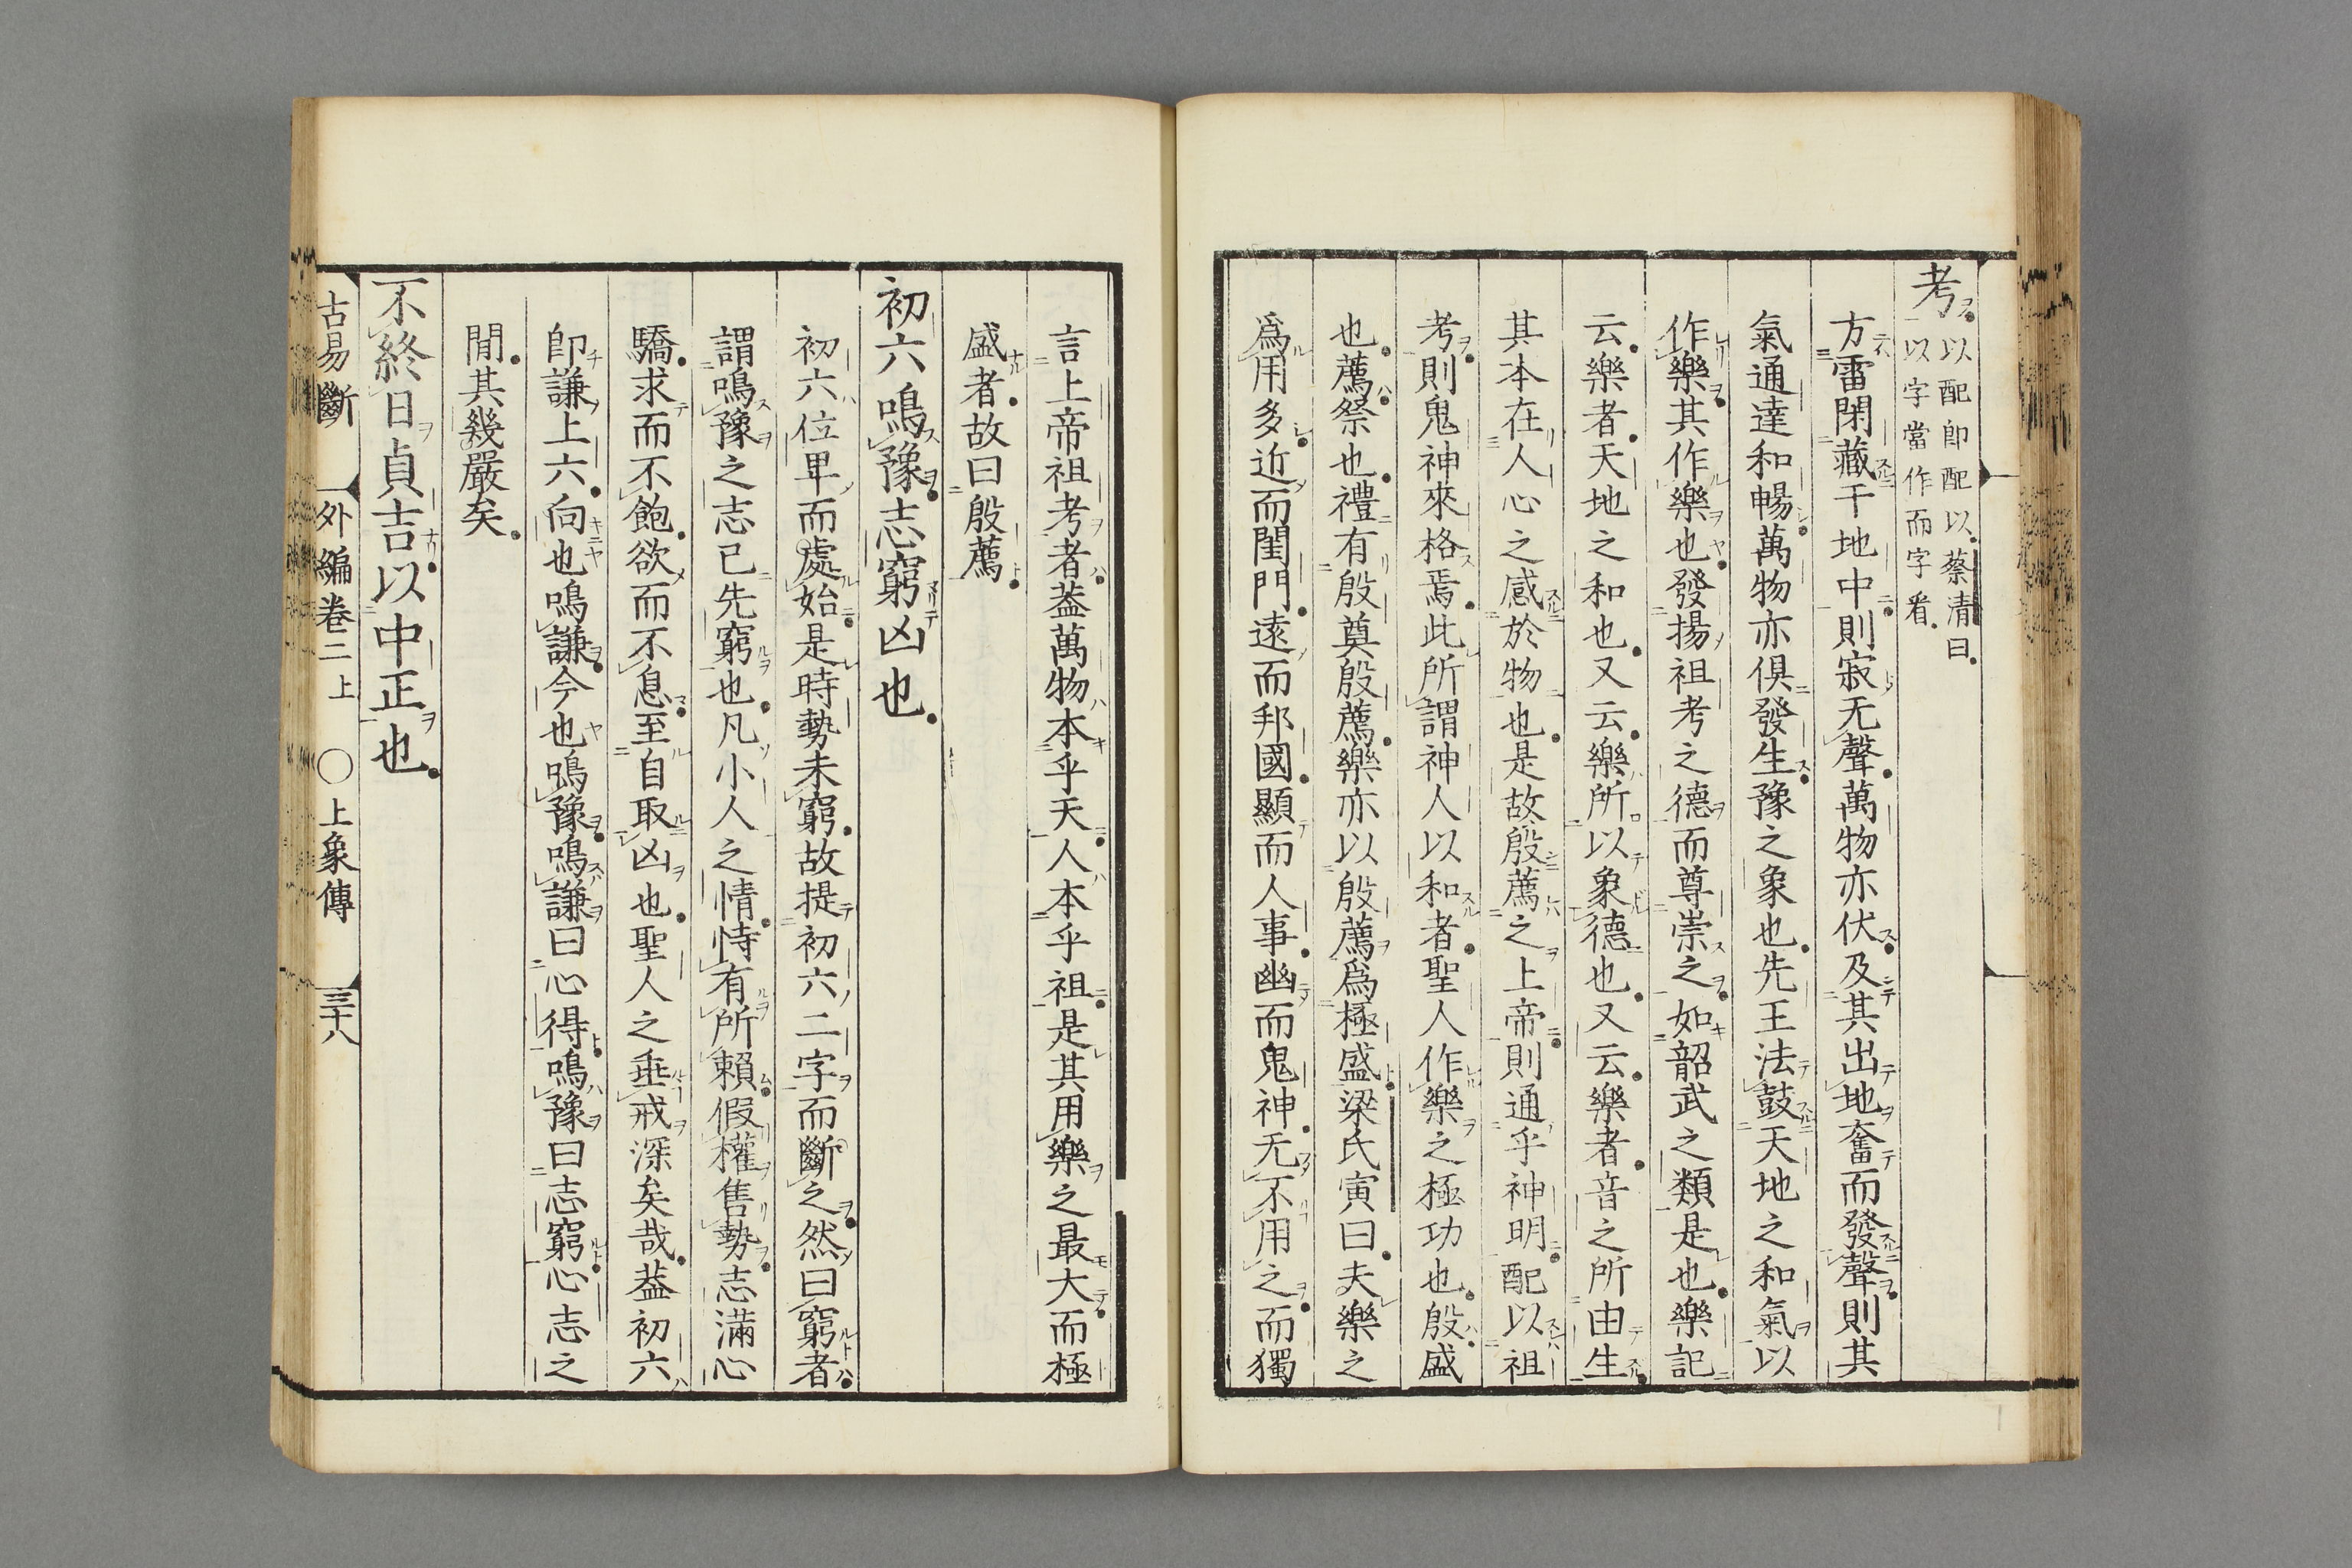 考
以配卽配以蔡清曰
以字當作而字看
方雷閉藏于地中則寂无聲萬物亦伏及其出地奮而發聲則其
氣通達和暢萬物亦俱發生豫之象也先王法鼓天地之和氣以
作樂其作樂也發揚祖考之德而尊崇之如韶武之類是也樂記
云樂者天地之和也又云樂所以象德也又云樂者音之所由生
其本在人心之感於物也是故殷薦之上帝則通乎神明配以祖
考則鬼神來格焉此所謂神人以和者聖人作樂之極功也殷盛
也薦祭也禮有殷奠殷薦樂亦以殷薦爲極盛梁氏寅曰夫樂之
爲用多近而閨門遠而邦國顯而人事幽而鬼神无不用之而獨
言上帝祖考者葢萬物本乎天人本乎祖是其用樂之最大而極
盛者故曰殷薦
初六鳴豫志窮凶也
初六位卑而處始是時勢未窮故提初六二字而斷之然曰窮者
謂鳴豫之志已先窮也凡小人之情恃有所賴假權售勢志滿心
驕求而不飽欲而不息至自取凶也聖人之垂戒深矣哉葢初六
卽謙上六向也鳴謙今也鳴豫鳴謙曰心得鳴豫曰志窮心志之
閒其幾嚴矣
不終日貞吉以中正也
古易斷　外編卷二上　〇上象傳　三十八